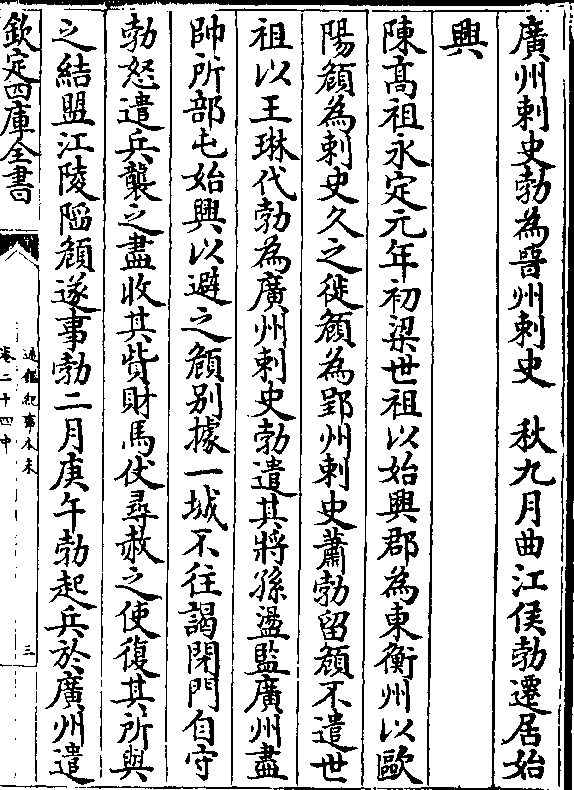 廣州刺史勃為晉州刺史　秋九月曲江侯勃遷居始
興
陳髙祖永定元年初梁世祖以始興郡為東衡州以歐
陽頠為刺史久之徙頠為郢州刺史蕭勃留頠不遣世
祖以王琳代勃為廣州刺史勃遣其將孫盪監廣州盡
帥所部屯始興以避之頠别據一城不往謁閉門自守
勃怒遣兵襲之盡收其貲財馬仗尋赦之使復其所與
之結盟江陵陷頠遂事勃二月庚午勃起兵於廣州遣
欽定四庫全書
通鑑紀事本末
卷二十四中
三